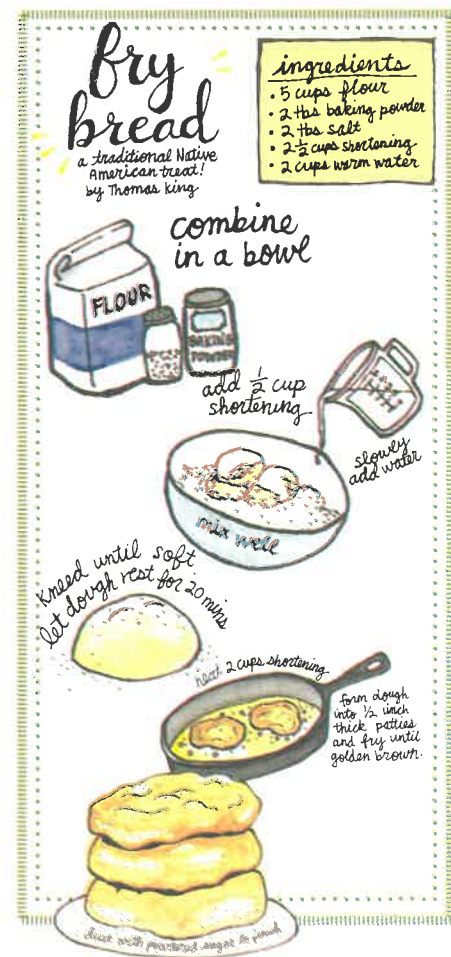 fry
bread
a traditional Native
American treat!
by Thomas King
ingredients
• 5 cups flour
• 2 tbs baking powder
• 2 tbs salt
• 2 ½ cups shortening
• 2 cups warm water
combine
in a bowl
FLOUR
BAKING
POWDER
add ½ cup
shortening
slowly
add water
mix well
Kneed until soft
let dough rest for 20 mins
heat 2 cups shortening
form dough
into ½ inch
thick patties
and fry until
golden brown.
dust with powdered sugar to finish